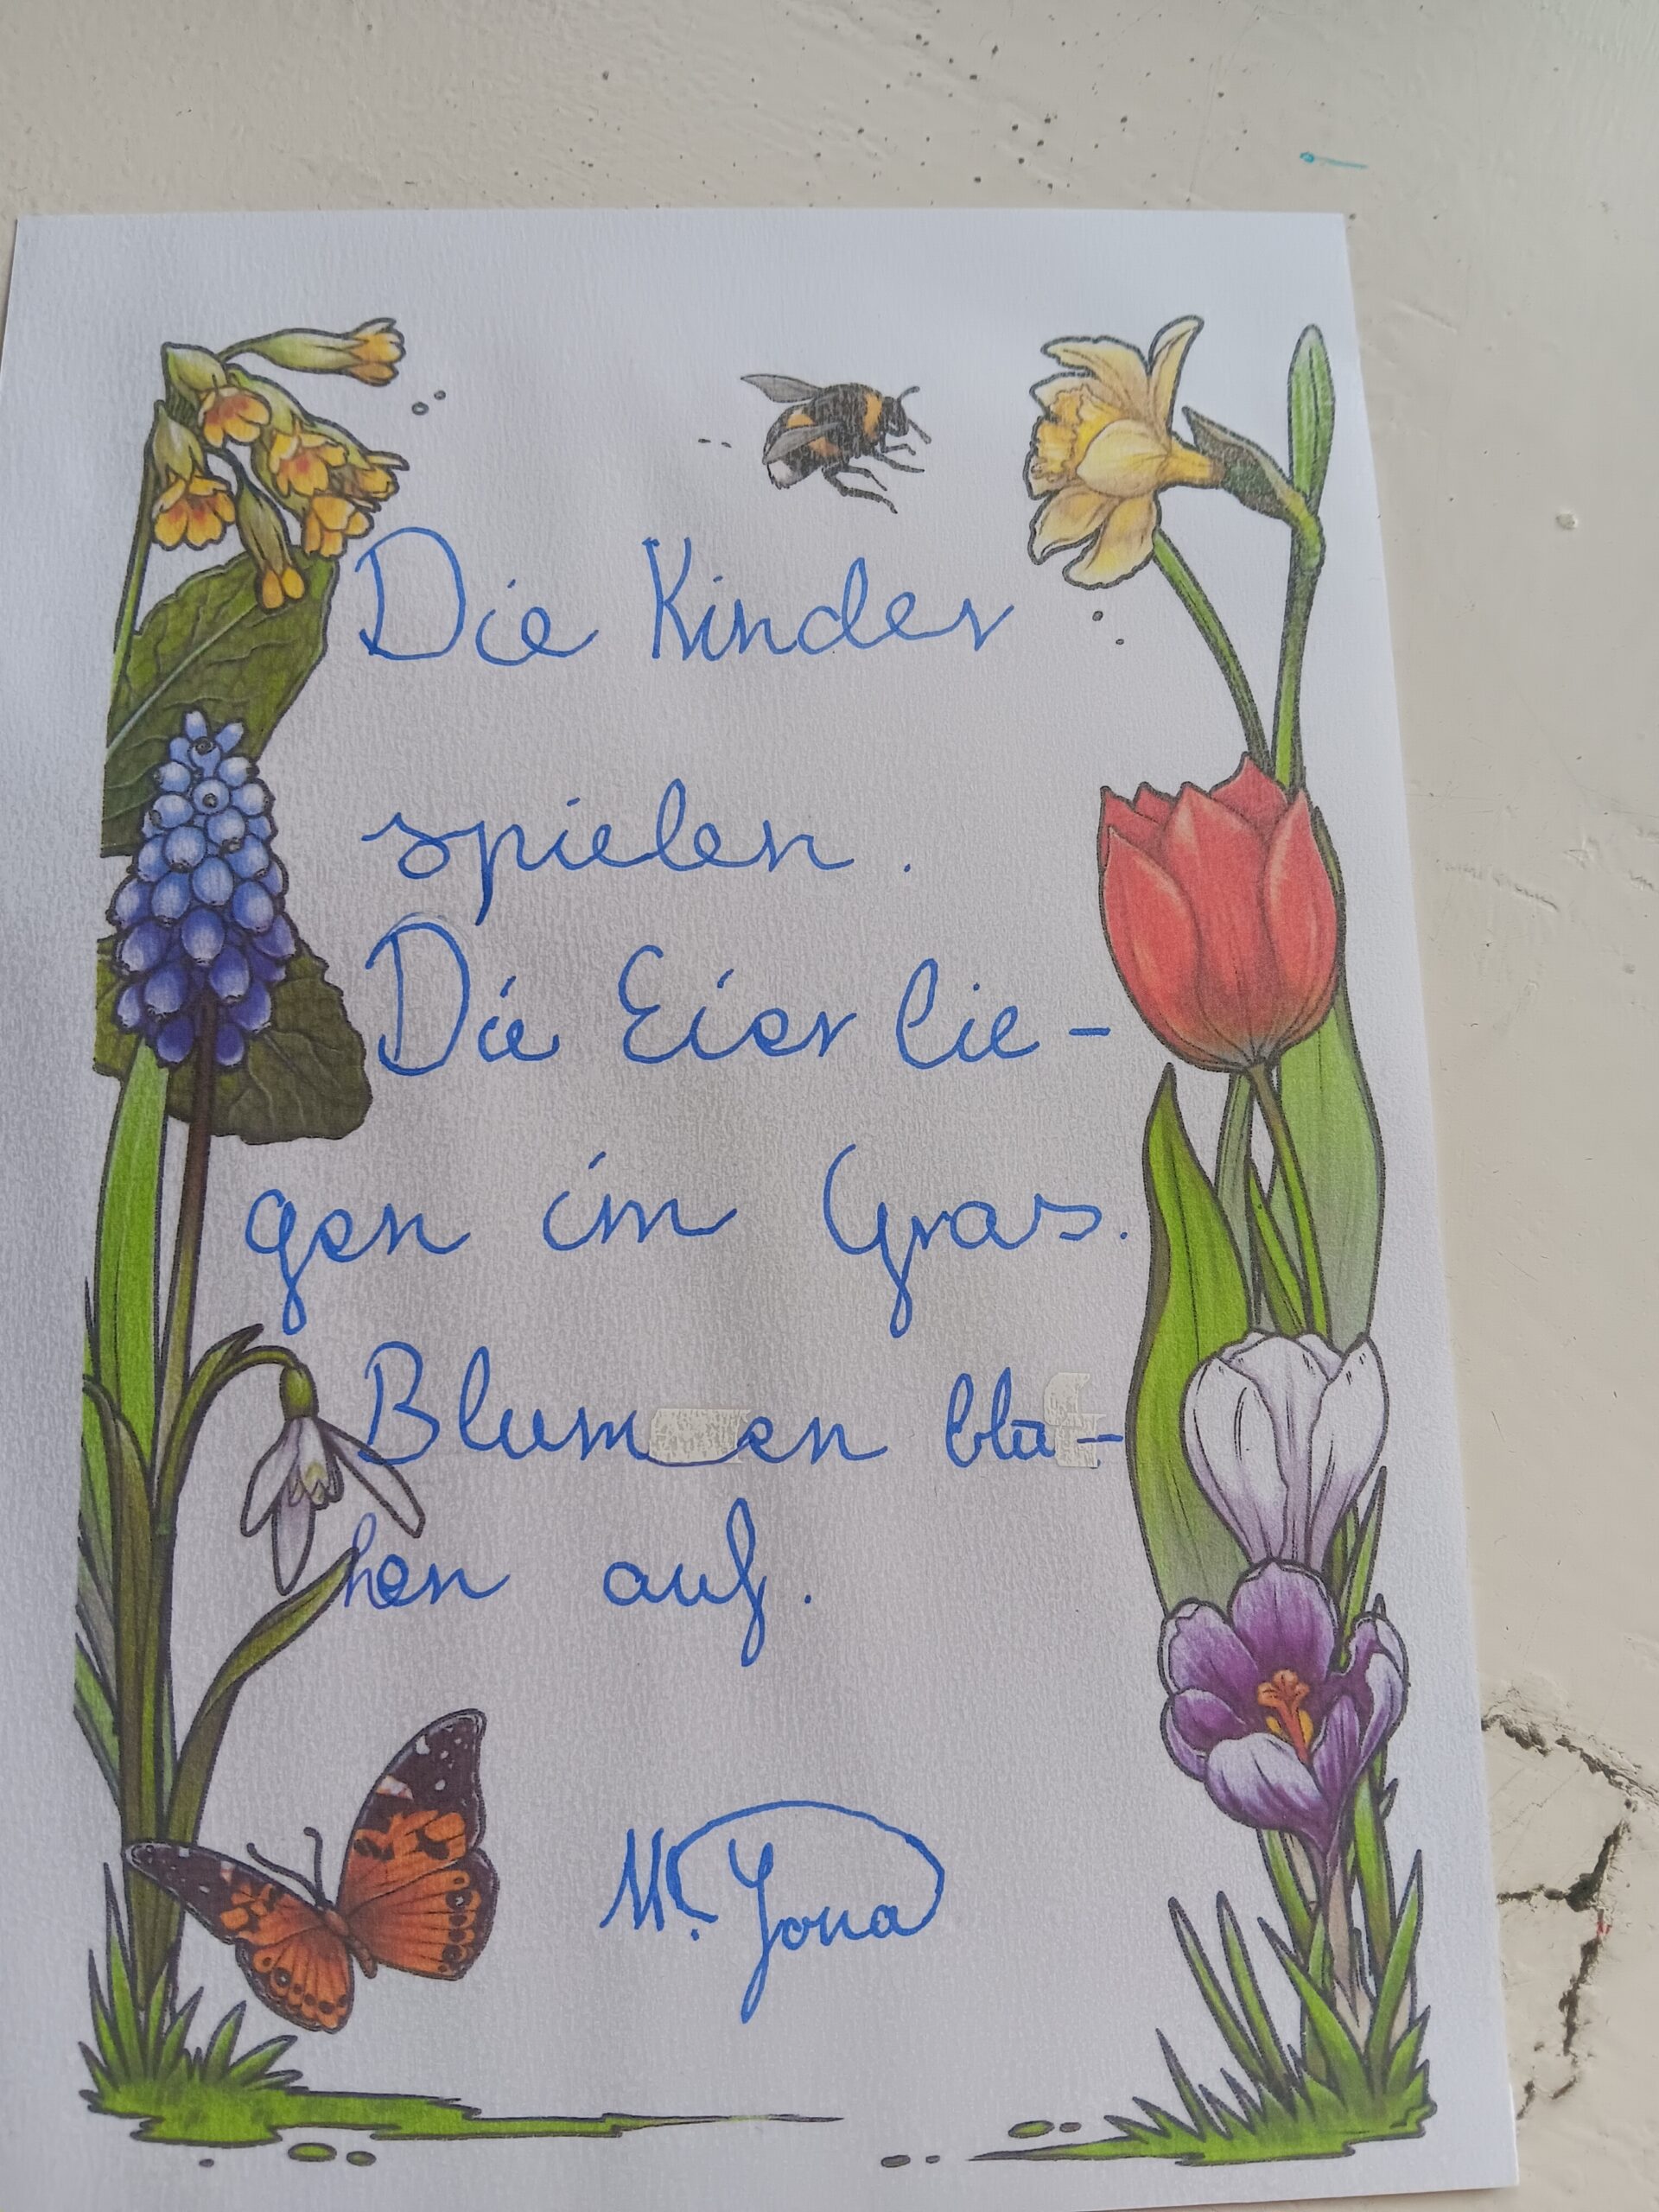 Die Kinder
spielen.
Die Eier lie-
gen im Gras.
Blumen blü-
hen auf.
M. Jona